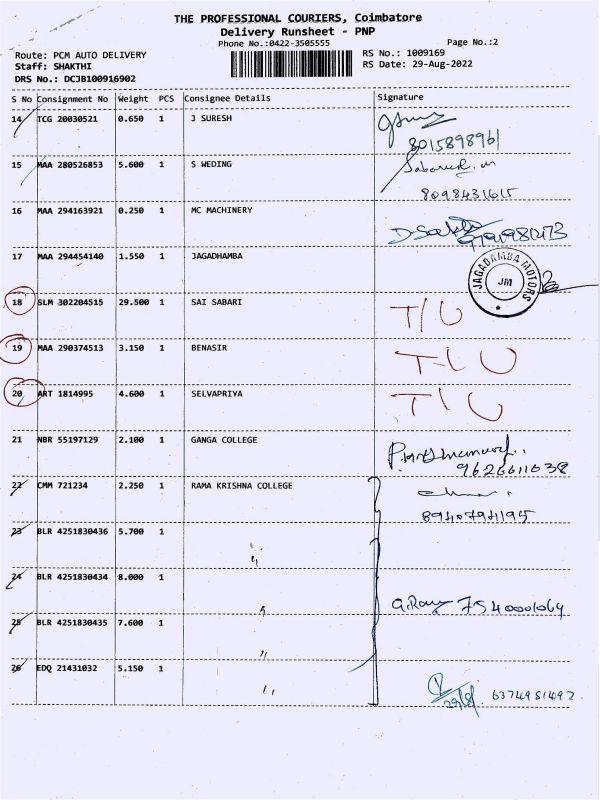 THE PROFESSIONAL COURIERS, Coimbatore
Delivery Runsheet - PNP
Phone No.:0422-3505555
Page No.:2
Route: PCM AUTO DELIVERY
RS No.: 1009169
Staff: SHAKTHI
RS Date: 29-Aug-2022
DRS No.: DCJB100916902
S No Consignment No Weight PCS Consignee Details Signature
14 TCG 20030521 0.650 1 J SURESH
8015898961
15 MAA 280526853 5.600 1 S WEDING
8098431615
16 MAA 294163921 0.250 1 MC MACHINERY
17 MAA 294454140 1.550 1 JAGADHAMBA
JAGADAMBA MOTORS
JM
18 SLM 302204515 29.500 1 SAI SABARI T/U
19 MAA 290374513 3.150 1 BENASIR T-L U
20 ART 1814995 4.600 1 SELVAPRIYA T L U
21 NBR 55197129 2.100 1 GANGA COLLEGE
9626611038
22 CMM 721234 2.250 1 RAMA KRISHNA COLLEGE
8940794195
23 BLR 4251830436 5.700 1 "
24 BLR 4251830434 8.000 1 "
7540001069
25 BLR 4251830435 7.600 1 "
26 EDQ 21431032 5.150 1 "
29/8 6374951492